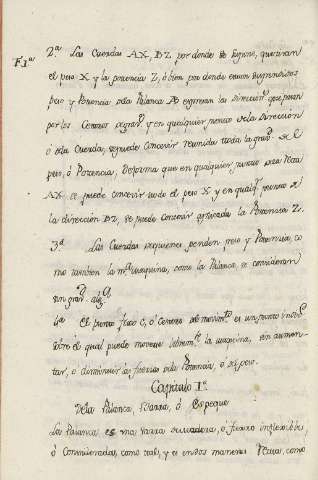 F.1ª
2.ª Las Cuerdas AX, BZ por donde se supone, que tiran
el peso X y la potencia Z, ó bien por donde estan suspendidos
peso y Potencia de la Palanca AB expresan las Direccion.s que pasan
por los Centros de grav.d y en qualquier punto de la Direccion
ó de la Cuerda, se puede concevir reunida toda la grav.d del
peso, ó Potencia, de forma que en qualquier punto de la recta
AX se puede concevir todo el peso X y en qualq.r punto de
la direccion BZ, se puede concevir aplicada la Potencia Z.
3.ª Las Cuerdas de que penden peso y Potencia, co
mo tambien la m.ª maquina, como la Palanca, se consideran
sin grav.d alg.ª
4.ª El punto fixo C, ó Centro de movim.to es un punto
sobre el qual puede moverse la maquina, sin aumen
tar, ó disminuir las fuerzas de la Potencia, ó del peso.
Capitulo 1.º
De la Palanca, Varra, ó Espeque
La Palanca es una Varra de madera, ó fierro inflexible,
ó considerada como tal, y es en dos maneras Recta, como